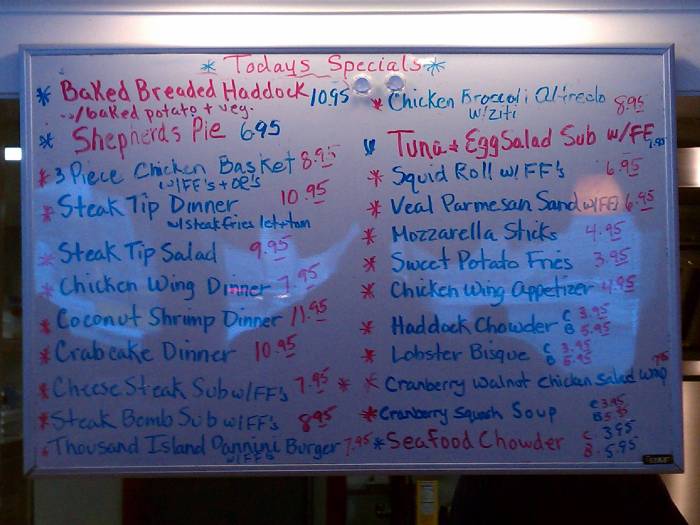 * Todays Specials *
* Baked Breaded Haddock 10.95
w/baked potato + veg.
* Shepherds Pie 6.95
* 3 Piece Chicken Basket 8.95
w/FF's + OR's
* Steak Tip Dinner 10.95
w/steak fries let+tom
* Steak Tip Salad 9.95
* Chicken Wing Dinner 7.95
* Coconut Shrimp Dinner 11.95
* Crabcake Dinner 10.95
* Cheese Steak Sub w/FF's 7.95 *
* Steak Bomb Sub w/FF's 8.95
* Thousand Island Pannini Burger 7.95
w/FF's
* Chicken Broccoli Alfredo 8.95
w/Ziti
* Tuna + Egg Salad Sub w/FF
* Squid Roll w/FF's 6.95
* Veal Parmesan Sand w/FF 6.95
* Mozzarella Sticks 4.95
* Sweet Potato Fries 3.95
* Chicken Wing Appetizer 4.95
* Haddock Chowder C 3.95
B 5.95
* Lobster Bisque C 3.95
B 5.95
* Cranberry Walnut Chicken Salad Wrap
* Cranberry Squash Soup C 3.95
B 5.95
* Seafood Chowder C 3.95
B 5.95